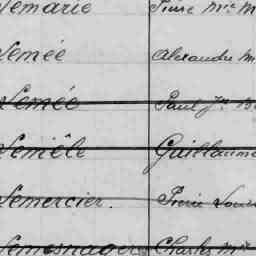 Lemarie Pierre Mie M
Lemée Alexandre M
Lemée Paul Jn
Lemièle Guillaume
Lemercier. Pierre Louis
Lemesnager Charles Mie